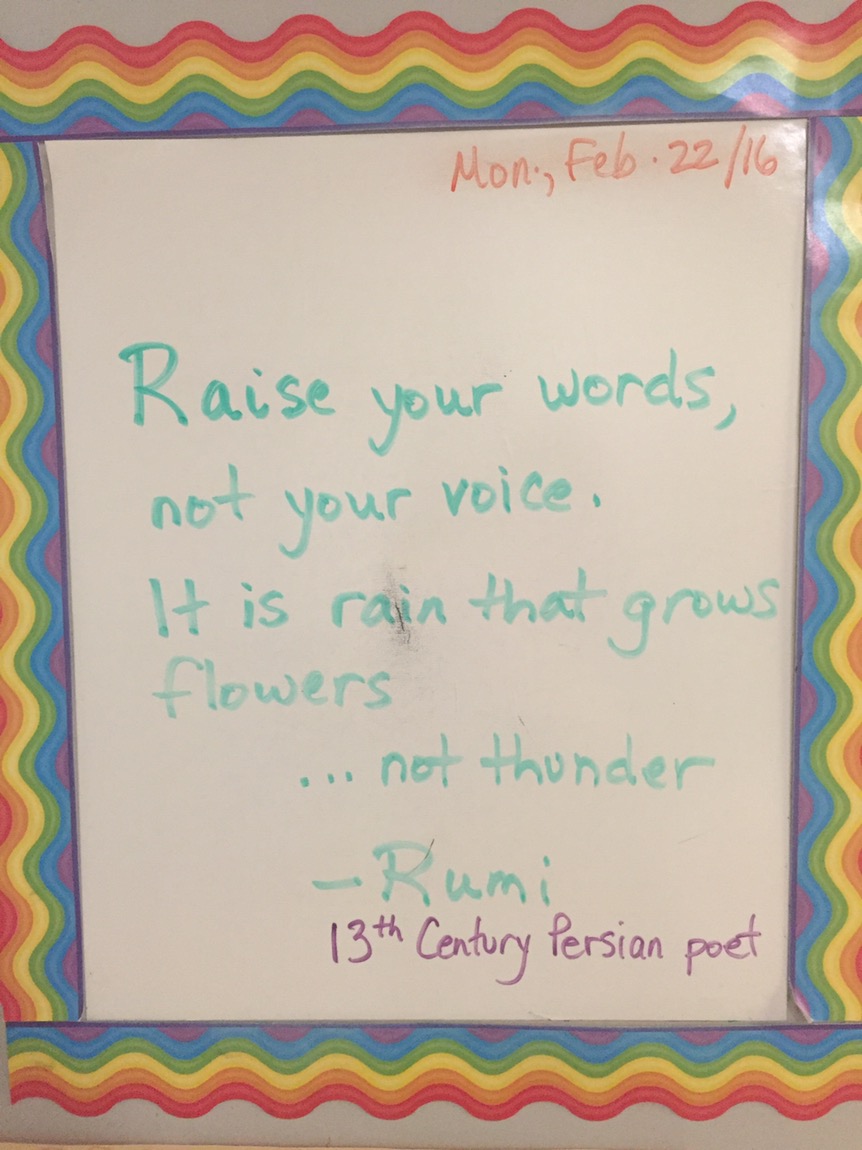 Mon., Feb. 22/16
Raise your words,
not your voice.
It is rain that grows
flowers
... not thunder
- Rumi
13th Century Persian poet